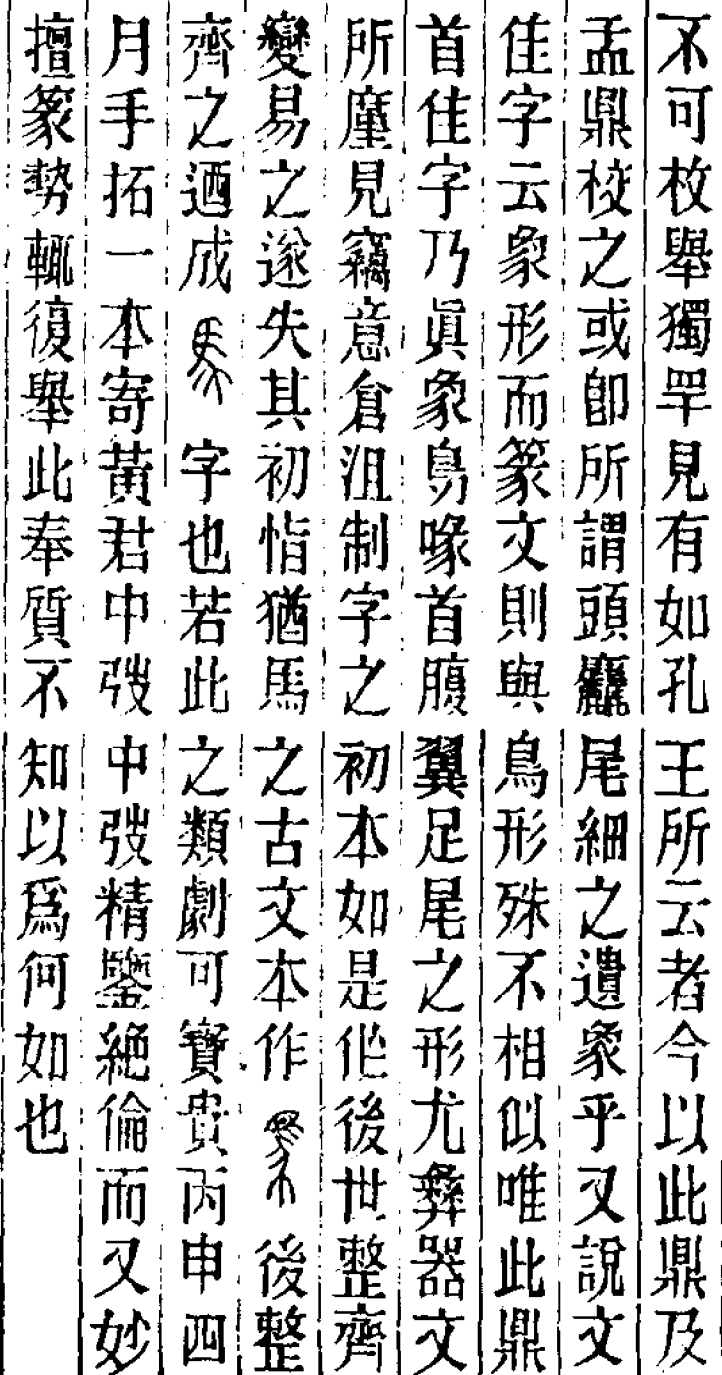 不可枚舉獨罕見有如孔王所云者今以此鼎及
盂鼎校之或卽所謂頭麤尾細之遺象乎又說文
隹字云象形而篆文則與鳥形殊不相似唯此鼎
首隹字乃眞象鳥喙首腹翼足尾之形尤彝器文
所廑見竊意倉沮制字之初本如是作後世整齊
變易之遂失其初恉猶馬之古文本作 後整
齊之迺成 字也若此之類劇可寶貴丙申四
月手拓一本寄黃君中弢中弢精鑒絶倫而又妙
擅篆勢輒復舉此奉質不知以爲何如也